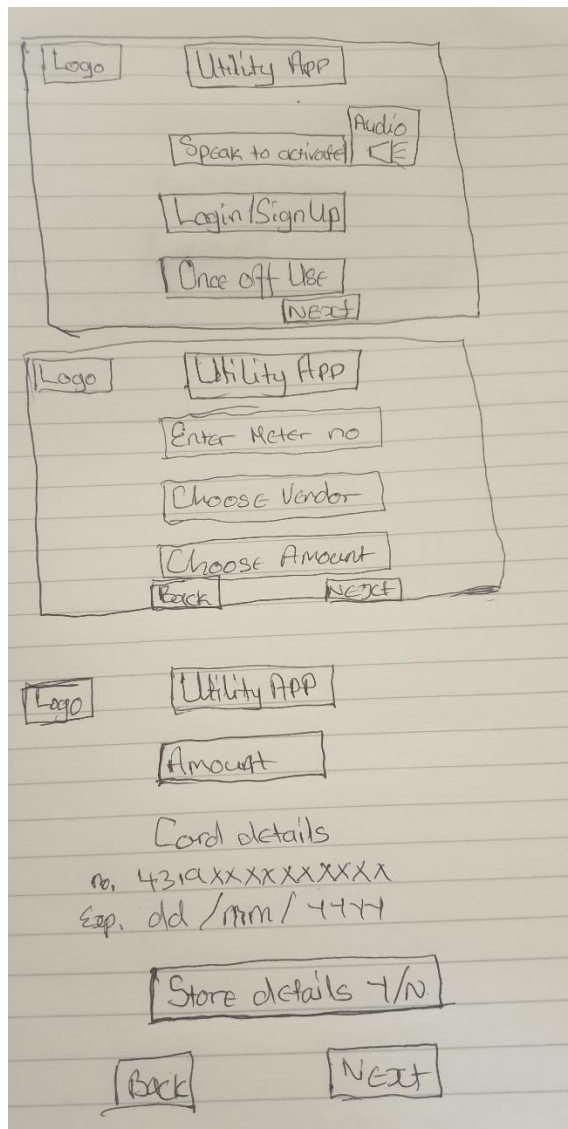 Logo Utility App
Audio
Speak to activate
Login/SignUp
Once off Use
Next
Logo Utility App
Enter Meter no
Choose Vendor
Choose Amount
Back Next
Logo Utility App
Amount
Card details
no. 4319XXXXXXXXXXX
Exp. dd/mm/YYYY
Store details Y/N.
Back Next